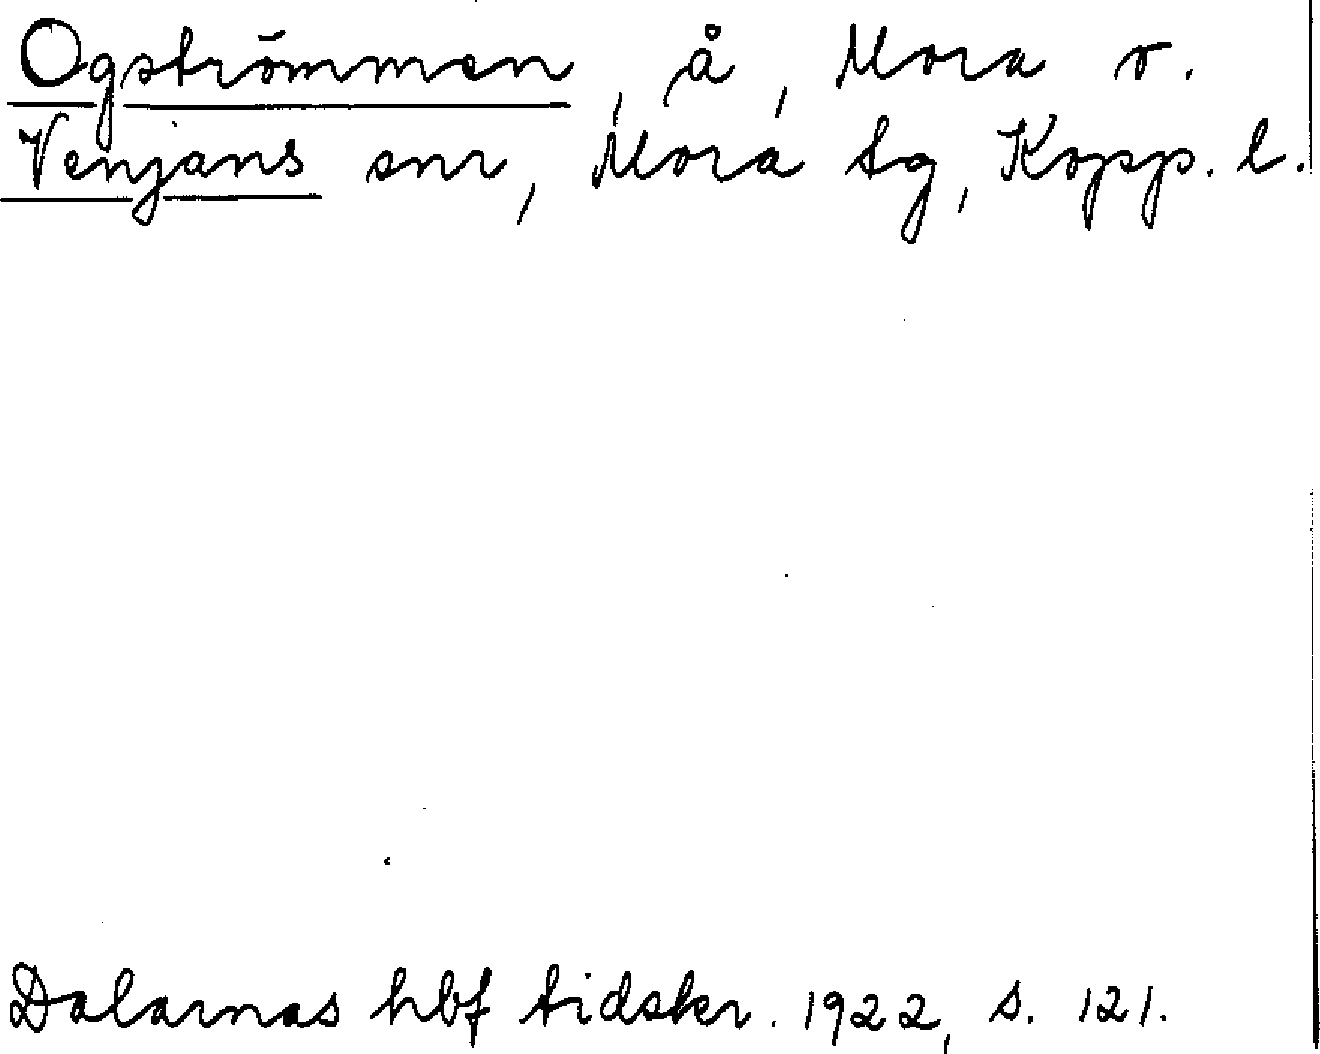 Ogströmmen, å, Mora o.
Venjans snr, Mora tg, Kopp. l.
Dalarnas hbf tidskr. 1922, s. 121.